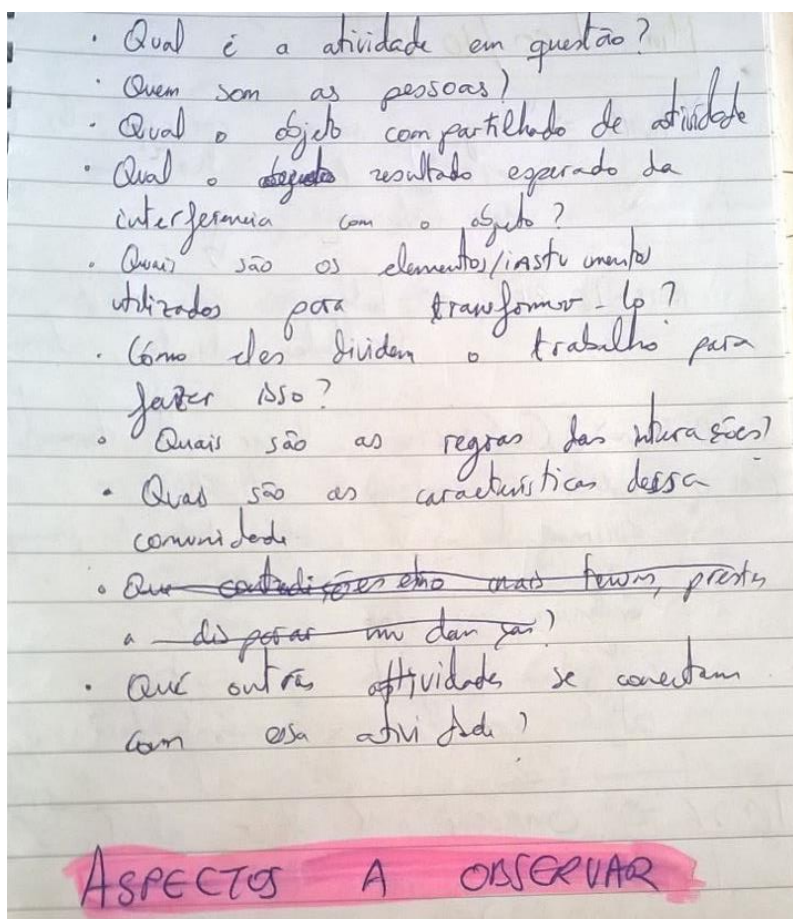 · Qual é a atividade em questão?
· Quem som as pessoas?
· Qual o objeto compartilhado de atividade
· Qual o resultado esperado da
interferencia com o objeto?
· Quais são os elementos/instrumentos
utilizados para transformar-lo?
· Cómo eles dividem o trabalho para
fazer isso?
· Quais são as regras das interações?
· Quais são as características dessa
comunidade
· Que contradições estão mais tensas, prestes
a disparar mudanças?
· Que outras atividades se conectam
com essa atividade?
ASPECTOS A OBSERVAR